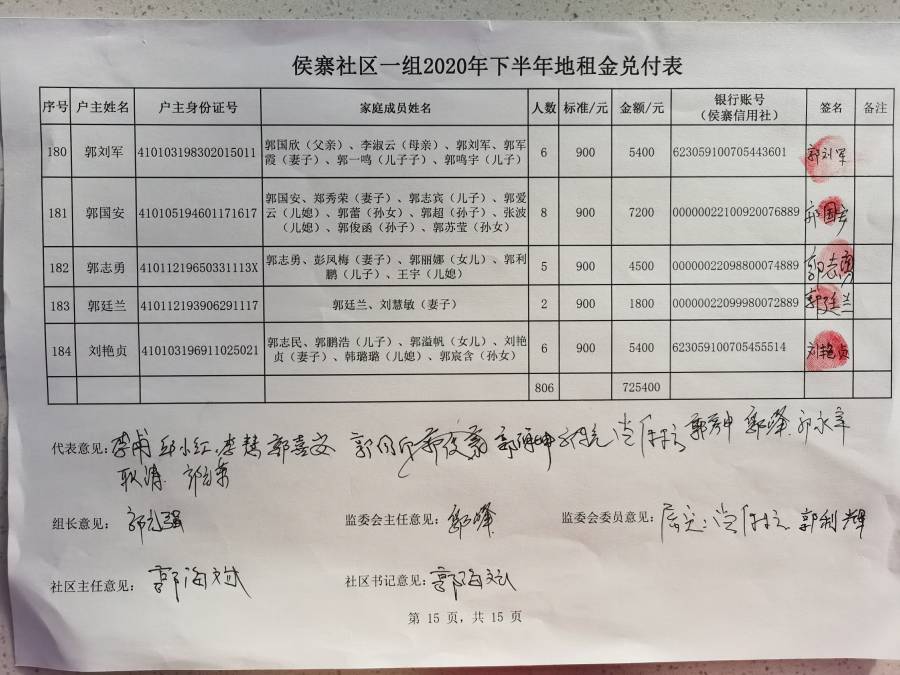 侯寨社区一组2020年下半年地租金兑付表
序号 户主姓名 户主身份证号 家庭成员姓名 人数 标准/元 金额/元 银行账号 签名 备注
（侯寨信用社）
180 郭刘军 410103198302015011 郭国欣（父亲）、李淑云（母亲）、郭刘军、郭军 6 900 5400 623059100705443601 郭刘军
霞（妻子）、郭一鸣（儿子子）、郭鸣宇（儿子）
181 郭国安 410105194601171617 郭国安、郑秀荣（妻子）、郭志宾（儿子）、郭爱 8 900 7200 00000022100920076889 郭国安
云（儿媳）、郭蕾（孙女）、郭超（孙子）、张波
（儿媳）、郭俊函（孙子）、郭苏莹（孙女）
182 郭志勇 41011219650331113X 郭志勇、彭凤梅（妻子）、郭丽娜（女儿）、郭利 5 900 4500 00000022098800074889 郭志勇
鹏（儿子）、王宇（儿媳）
183 郭廷兰 410112193906291117 郭廷兰、刘慧敏（妻子） 2 900 1800 00000022099980072889 郭廷兰
184 刘艳贞 410103196911025021 郭志民、郭鹏浩（儿子）、郭溢帆（女儿）、刘艳 6 900 5400 623059100705455514 刘艳贞
贞（妻子）、韩璐璐（儿媳）、郭宸含（孙女）
806 725400
代表意见： 郭喜安 郭峰 郭永军
耿涛
组长意见： 监委会主任意见： 郭峰 监委会委员意见： 郭利辉
社区主任意见： 郭海斌 社区书记意见： 郭海斌
第 15 页，共 15 页